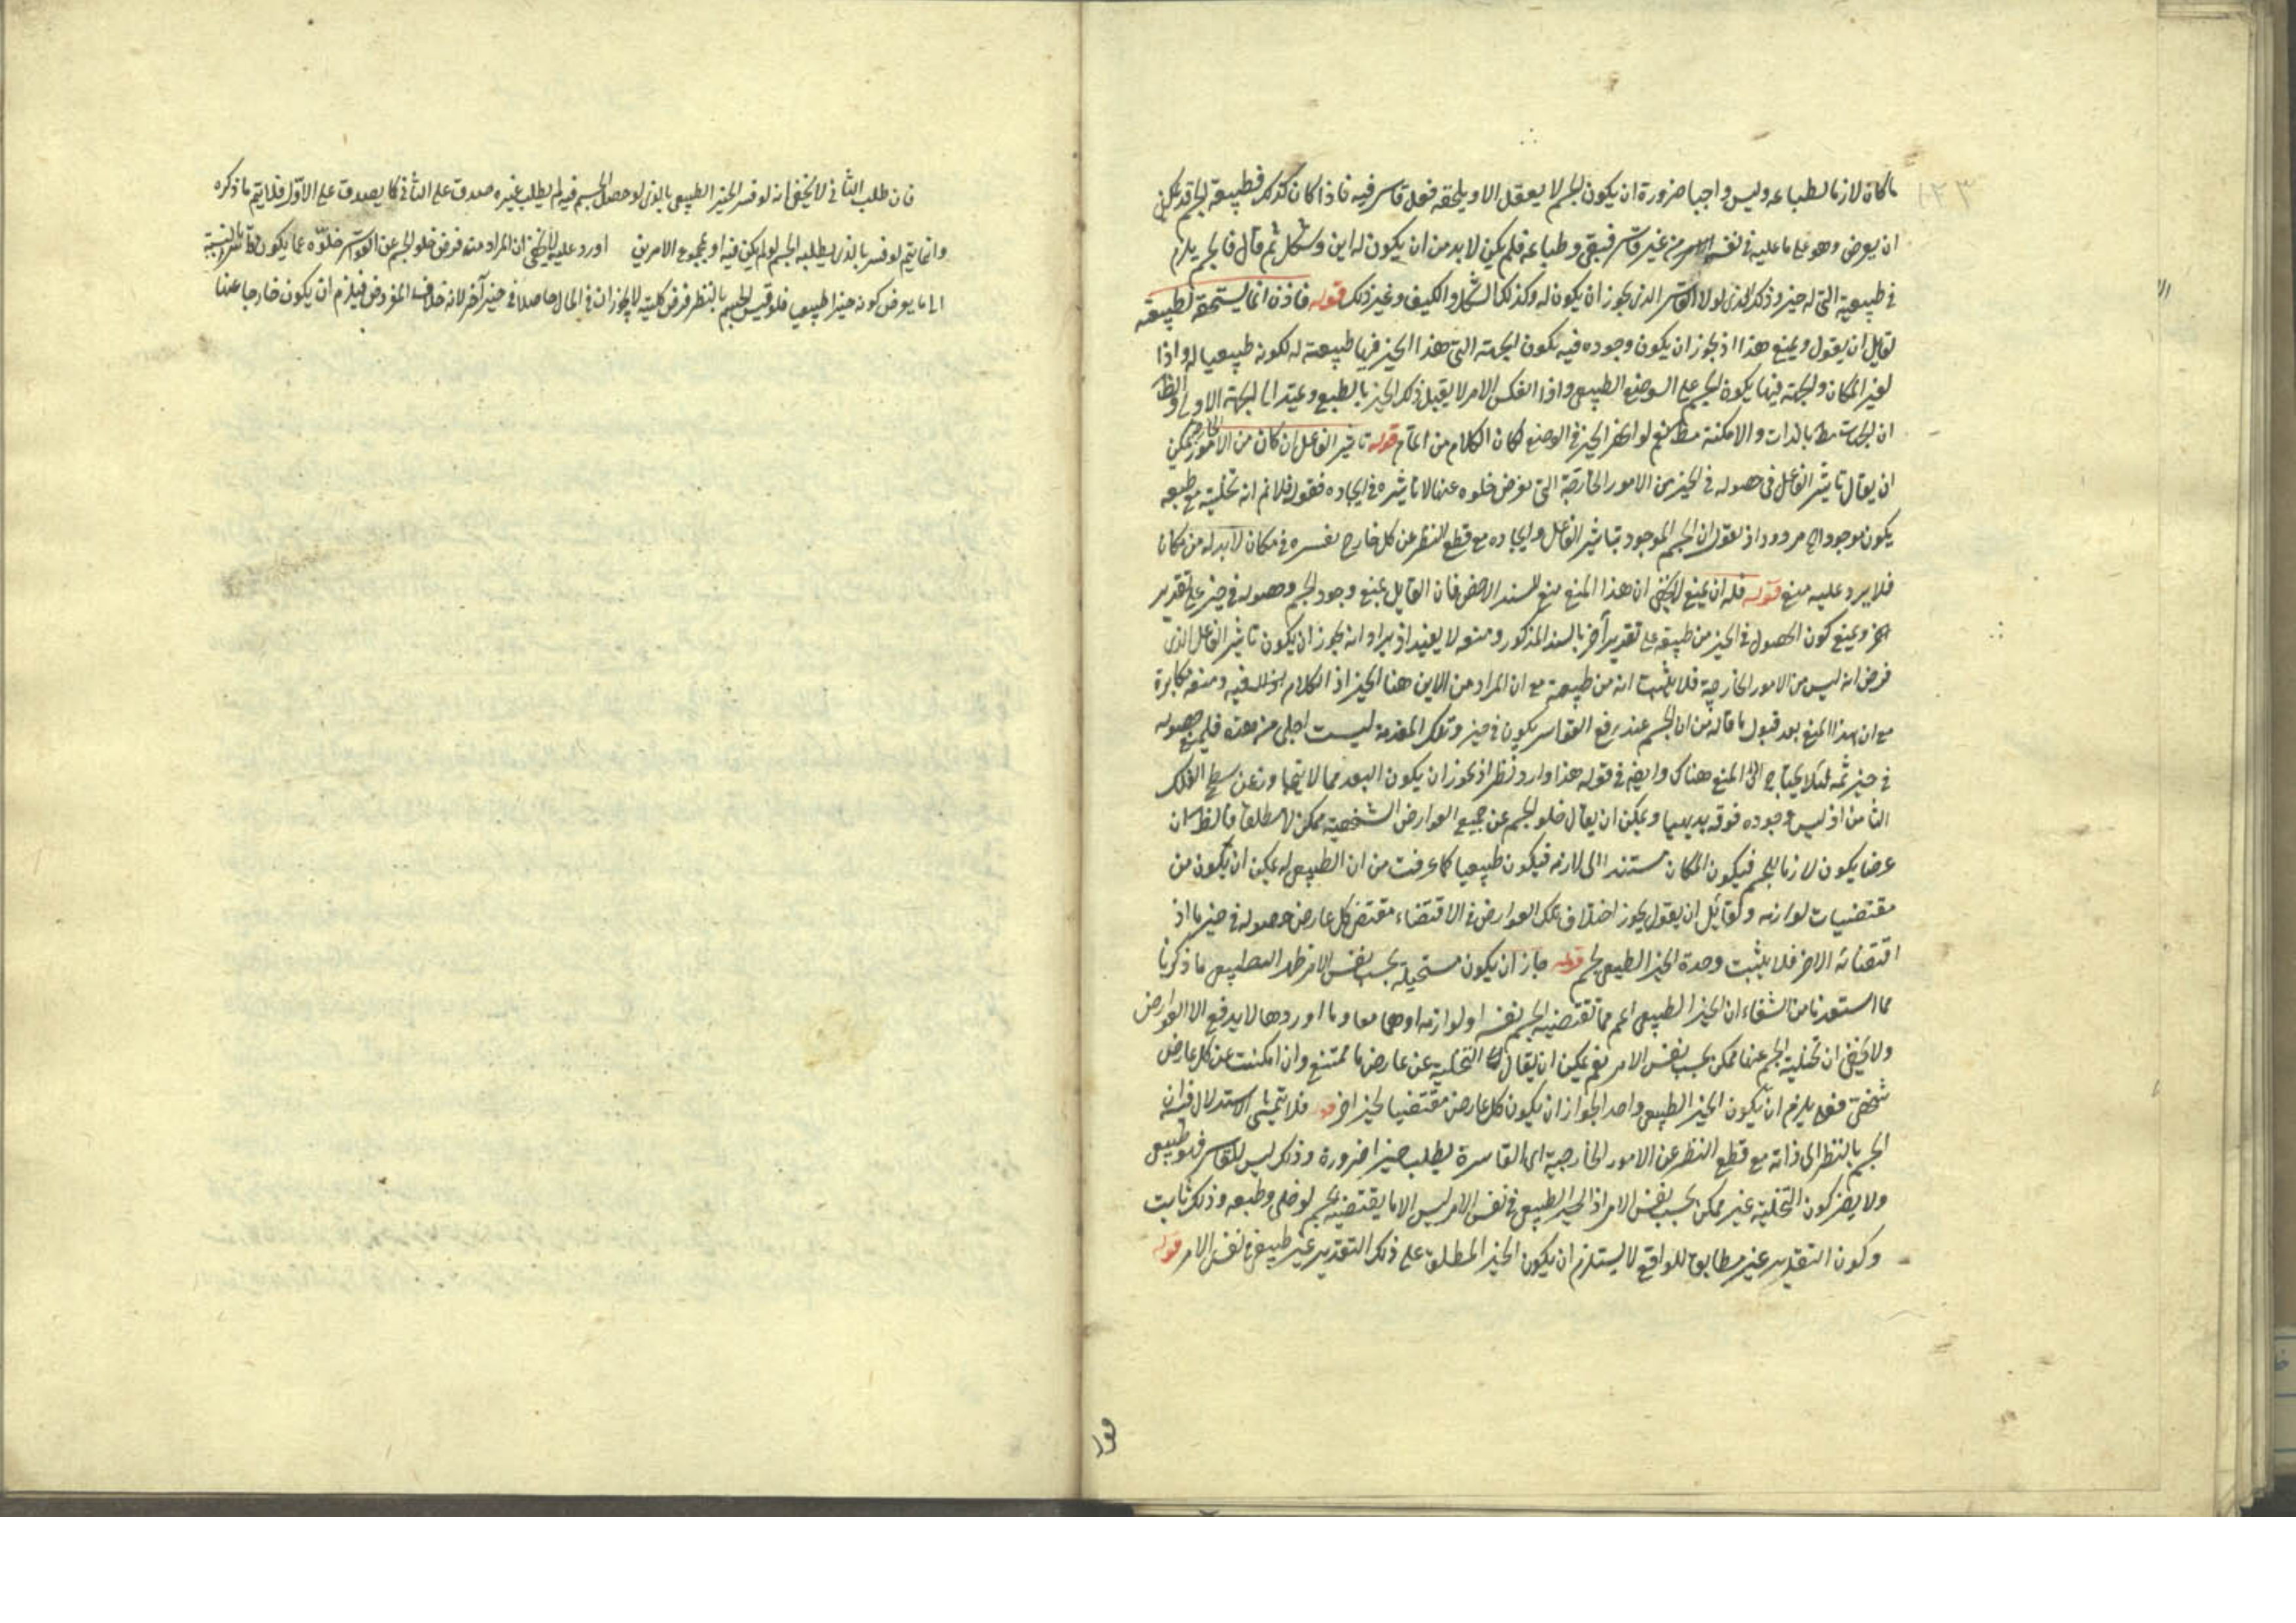 ١٢٣
ما كان لازما لطباعه وليس واجبا ضرورة ان يكون الجسم لا يعقل الا ويلحقه فعل قاسر فيه فاذا كان كذلك فطبيعة الجسم قد يمكن
ان يعرض وهو على ما عليه في نفسه من غير قاسر فبقي وطباعه فلم يكن لا بد من ان يكون له اين وشكل ثم قال فالجسم يلزم
في طبيعته التي له حيز وذلك الذي لولا القاسر الذي يجوز ان يكون له وكذلك الشكل والكيف وغير ذلك قوله فاذن انما يستحقه لطبيعته
لقايل ان يقول ويمنع هذا اذ يجوز ان يكون وجوده فيه لكون الجهة التي هذا الحيز فيها طبيعته له لكونه طبيعيا له واذا
لغير المكان والجهة فيها يكون الجسم على الوضع الطبيعي واذا انعكس الامر لا يقبل ذلك الحيز بالطبع و الى الجهة الاولى والظ
ان الجهات بالذات والامكنة نعم لو الحيز في الوضع لكان الكلام من قوله تاثير الفاعل ان كان من الامور الخارجة يمكن
ان يقال تاثير الفاعل في حصوله في الحيز من الامور الخارجة التي يفرض خلوه عنها لا تاثيره في ايجاده فقوله فلا نم انه تخليته مع طبعه
يكون موجودا مردود اذ نقول ان الجسم الموجود بتاثير الفاعل وايجاده مع قطع النظر عن كل خارج نفسره في مكان لا بد له من مكان
فلا يرد عليه منع قوله فله ان يمنع لا يخفى ان هذا المنع منع للسند الاخص فان القايل يمنع وجود الجسم وحصوله في حيز على تقدير
ويمنع كون الحصول في الحيز من طبيعته على تقدير آخر بالسند المذكور ومنعه لا يفيد اذ يراد انه يجوز ان يكون تاثير الفاعل الذي
فرض انه ليس من الامور الخارجية فلا يثبت انه من طبيعته مع ان المراد من الاين هنا الحيز اذ الكلام فيه ومنعه مكابرة
مع ان هذا المنع بعد قبول ما قاله من ان الجسم عند رفع القواسر يكون في حيز وتلك المقدمة ليست اجلى من هذه فليمنع حصوله
في حيز ثمه لئلا يحتاج الى المنع هناك وايضا في قوله هذا وارد نظر اذ يجوز ان يكون البعد مما لا يتجاوز عن سطح الفلك
الثامن اذ ليس وجوده فوقه بديهيا ويمكن ان يقال خلو الجسم عن جميع العوارض الشخصية ممكن لا مطلقا فالظ ان
عرضا يكون لازما للجسم فيكون المكان مستندا الى لازمه فيكون طبيعيا كما عرفت من ان الطبيعي له يمكن ان يكون من
مقتضيات لوازمه ولقائل ان يقول يجوز اختلاف تلك العوارض في الاقتضاء مقتضى كل عارض حصوله في حيز ما اذ
اقتضائه الاخر فلا يثبت وحدة الحيز الطبيعي للجسم قوله جاز ان يكون مستحيلة بحسب نفس الامر ما ذكرنا
مما استفدنا من الشفاء ان الحيز الطبيعي اعم مما تقتضيه الجسم بنفسه او لوازمه او هما معا وما اوردها لا يدفع الا العوارض
ولا يخفى ان تخلية الجسم عنها ممكن بحسب نفس الامر نعم يمكن ان يقال التخلية عن عارض ما ممتنع وان امكنت عن كل عارض
شخصي فلم يلزم ان يكون الحيز الطبيعي واحدا لجواز ان يكون كل عارض مقتضيا لحيز اخر قوله فلا يتمشى الاستدلال
الجسم بالنظر الى ذاته مع قطع النظر عن الامور الخارجية اي القاسرة يطلب حيزا ضرورة وذلك ليس للقاسر فهو طبيعي
ولا يضر كون التخلية غير ممكن بحسب نفس الامر اذ الحيز الطبيعي في نفس الامر ليس الا ما يقتضيه الجسم لو خلى وطبعه وذلك ثابت
وكون التقدير غير مطابق للواقع لا يستلزم ان يكون الحيز المطلوب على ذلك التقدير غير طبيعي في نفس الامر قوله
فان طلب الثاني لا يخفى انه لو فسر الحيز الطبيعي بالذي لو حصل الجسم فيه لم يطلب غيره صدق على الثاني كما يصدق على الاول فلا يتم ما ذكره
وانما يتم لو فسر بالذي يطلبه الجسم لو لم يكن فيه او بمجموع الامرين اورد عليه لا يخفى ان المراد منه فرض خلو الجسم عن القواسر خلوه عما يكون قاسرا بالنسبة
الى ما يفرض كونه حيزا طبيعيا فلو قيس الجسم بالنظر فرض كليته لا يجوز ان في الحال حاصلا في حيز آخر لانه خلاف المفروض فيلزم ان يكون خارجا عنها